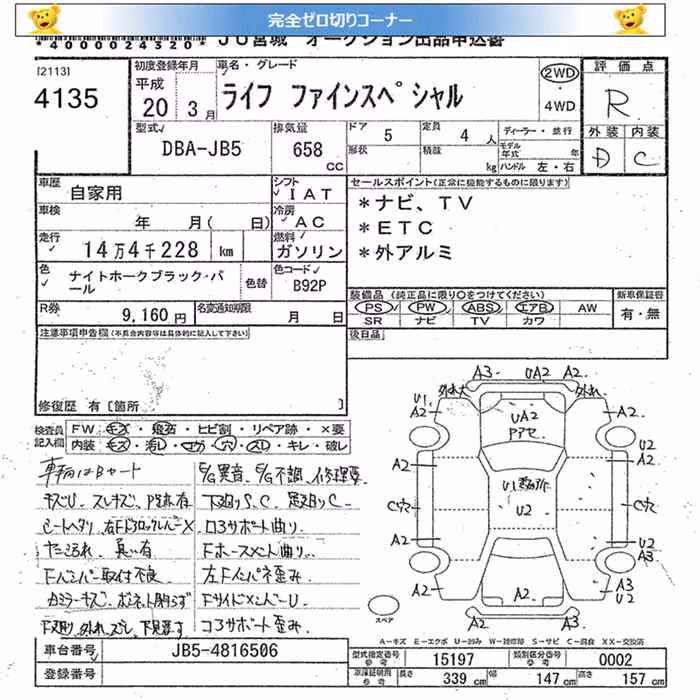 完全ゼロ切りコーナー
*4000024320* JU宮城 オークション出品申込書
[2113]
4135
初度登録年月
平成
20 3月
車名・グレード
ライフ ファインスペシャル
2WD
・
4WD
評価点
R
外装 内装
D C
型式
DBA-JB5
排気量
658
CC
ドア 5
定員 4 人
形状
積載 kg
ディーラー・並行
モデル年式 年
ハンドル 左・右
車歴
自家用
シフト
IAT
セールスポイント(正常に機能するものに限ります)
*ナビ、TV
*ETC
*外アルミ
車検
年 月( 日)
冷房
AC
走行
14万4千228 km
燃料
ガソリン
色
ナイトホークブラック・パール
色替
色コード
B92P
R券
9,160円
名変通知期限
月 日
装備品 (純正品に限り〇をつけてください)
PS PW ABS エアB AW
SR ナビ TV カワ
新車保証書
有・無
注意事項申告欄(不具合内容等は具体的に記入して下さい)
後日品
修復歴 有[箇所 ]
検査員記入欄
FW キズ・飛石・ヒビ割・リペア跡・×要
内装 キズ・汚レ・コゲ・穴・スレ・キレ・破レ
車輌はBヤード
E/G異音、E/G不調、修理要
下廻りS、C
コアサポート曲り
Fバンパー取付不良
左Fインパネ歪み
コアサポート歪み
A3 UA2 A2
外れ大
外れ
U1
A2
UA2
Pアセ
A2
U2
A2
A2
U2
C穴
C穴
A2
U2
A3
A2
A3
U2
A2
A3
スペア
A-キズ E-エクボ U-凹み W-補修跡 S-サビ C-腐食 XX-交換済
車台番号
JB5-4816506
登録番号
型式指定番号
参考
15197
類別区分番号
参考
0002
車庫証明用
参考
長さ 339 cm
幅 147 cm
高さ 157 cm